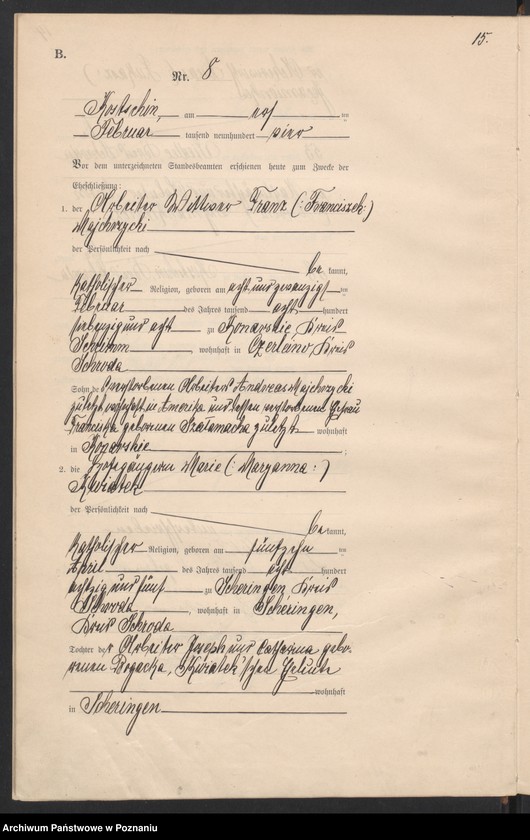 15.
B.
Nr. 8
Kostschin, am elf ten
Februar tausend neunhundert vier
Vor dem unterzeichneten Standesbeamten erschienen heute zum Zwecke der
Eheschließung:
1. der Arbeiter Wittwer Franz (: Franciszek :)
Majchrzycki
der Persönlichkeit nach
be kannt,
katholischer Religion, geboren am acht und zwanzigsten
Februar des Jahres tausend acht hundert
siebenzig und acht zu Konarskie, Kreis
Schrimm, wohnhaft in Kreis
Schroda
Sohn des verstorbenen Arbeiters Andreas Majchrzycki
zuletzt wohnhaft in Amerika und dessen verstorbenen Ehefrau
Franciska geborenen zuletzt wohnhaft
in Konarskie ;
2. die Marie (: Maryanna :)
Kwiatek
der Persönlichkeit nach
be kannt,
katholischer Religion, geboren am fünfzehn ten
April des Jahres tausend acht hundert
achtzig und fünf zu Scheringen, Kreis
Schroda, wohnhaft in Scheringen,
Kreis Schroda
Tochter der Arbeiter Joseph und Catharina gebo-
renen Kwiatek'schen Eheleute
wohnhaft
in Scheringen
Archiwum Państwowe w Poznaniu